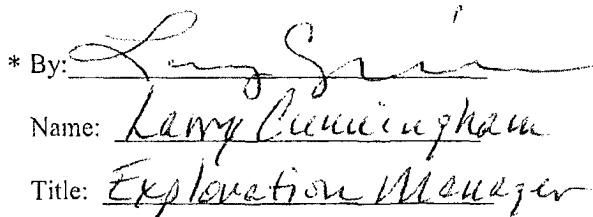 * By:
Name: Larry Cunningham
Title: Exploration Manager